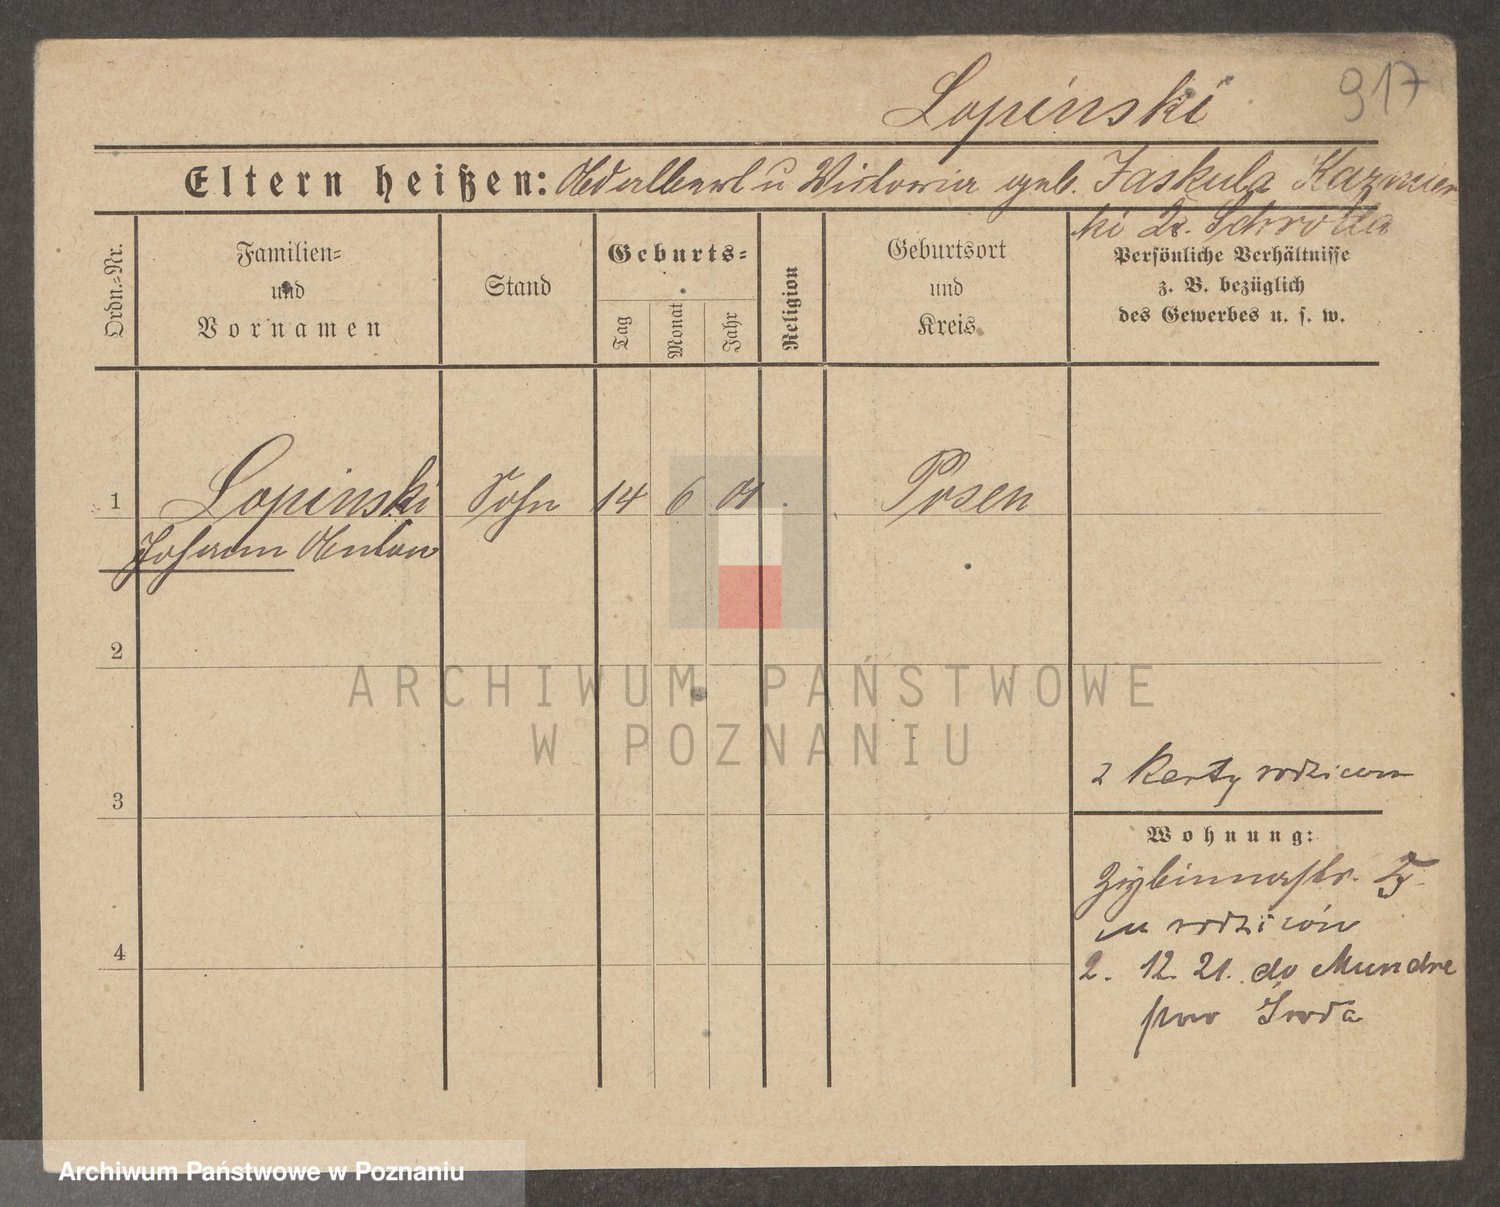 917
Lopinski
Eltern heißen: Adalbert u Victoria geb. Jaskula Kazmier
ki Kr. Schroda
Ordn.=Nr.
Familien=
und
Vornamen
Stand
Geburts=
Tag
Monat
Jahr
Religion
Geburtsort
und
Kreis
Persönliche Verhältnisse
z. B. bezüglich
des Gewerbes u. s. w.
1 Lopinski Sohn 14 6 01 Posen
Johann Anton
2
3
4
z karty rodziców
Wohnung:
u rodziców
2. 12. 21. do Mundre
pow Środa
ARCHIWUM PAŃSTWOWE
W POZNANIU
Archiwum Państwowe w Poznaniu